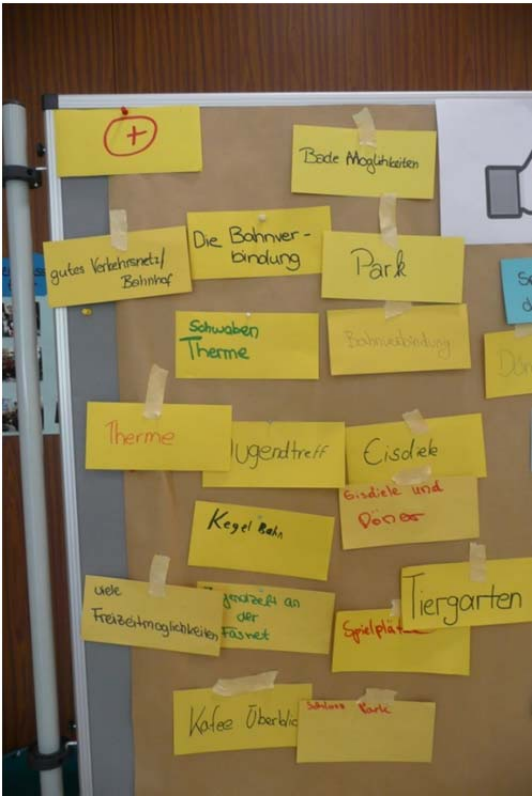 +
Bade Möglihkeiten
gutes Verkehrsnetz/
Bahnhof
Die Bahnver-
bindung
Park
Schwaben
Therme
Bahnverbindung
Therme
Jugendtreff
Eisdiele
Eisdiele und
Döner
Kegel Bahn
viele
Freizeitmöglichkeiten
an
der
Fasnet
Tiergarten
Kafee
Schloss Park